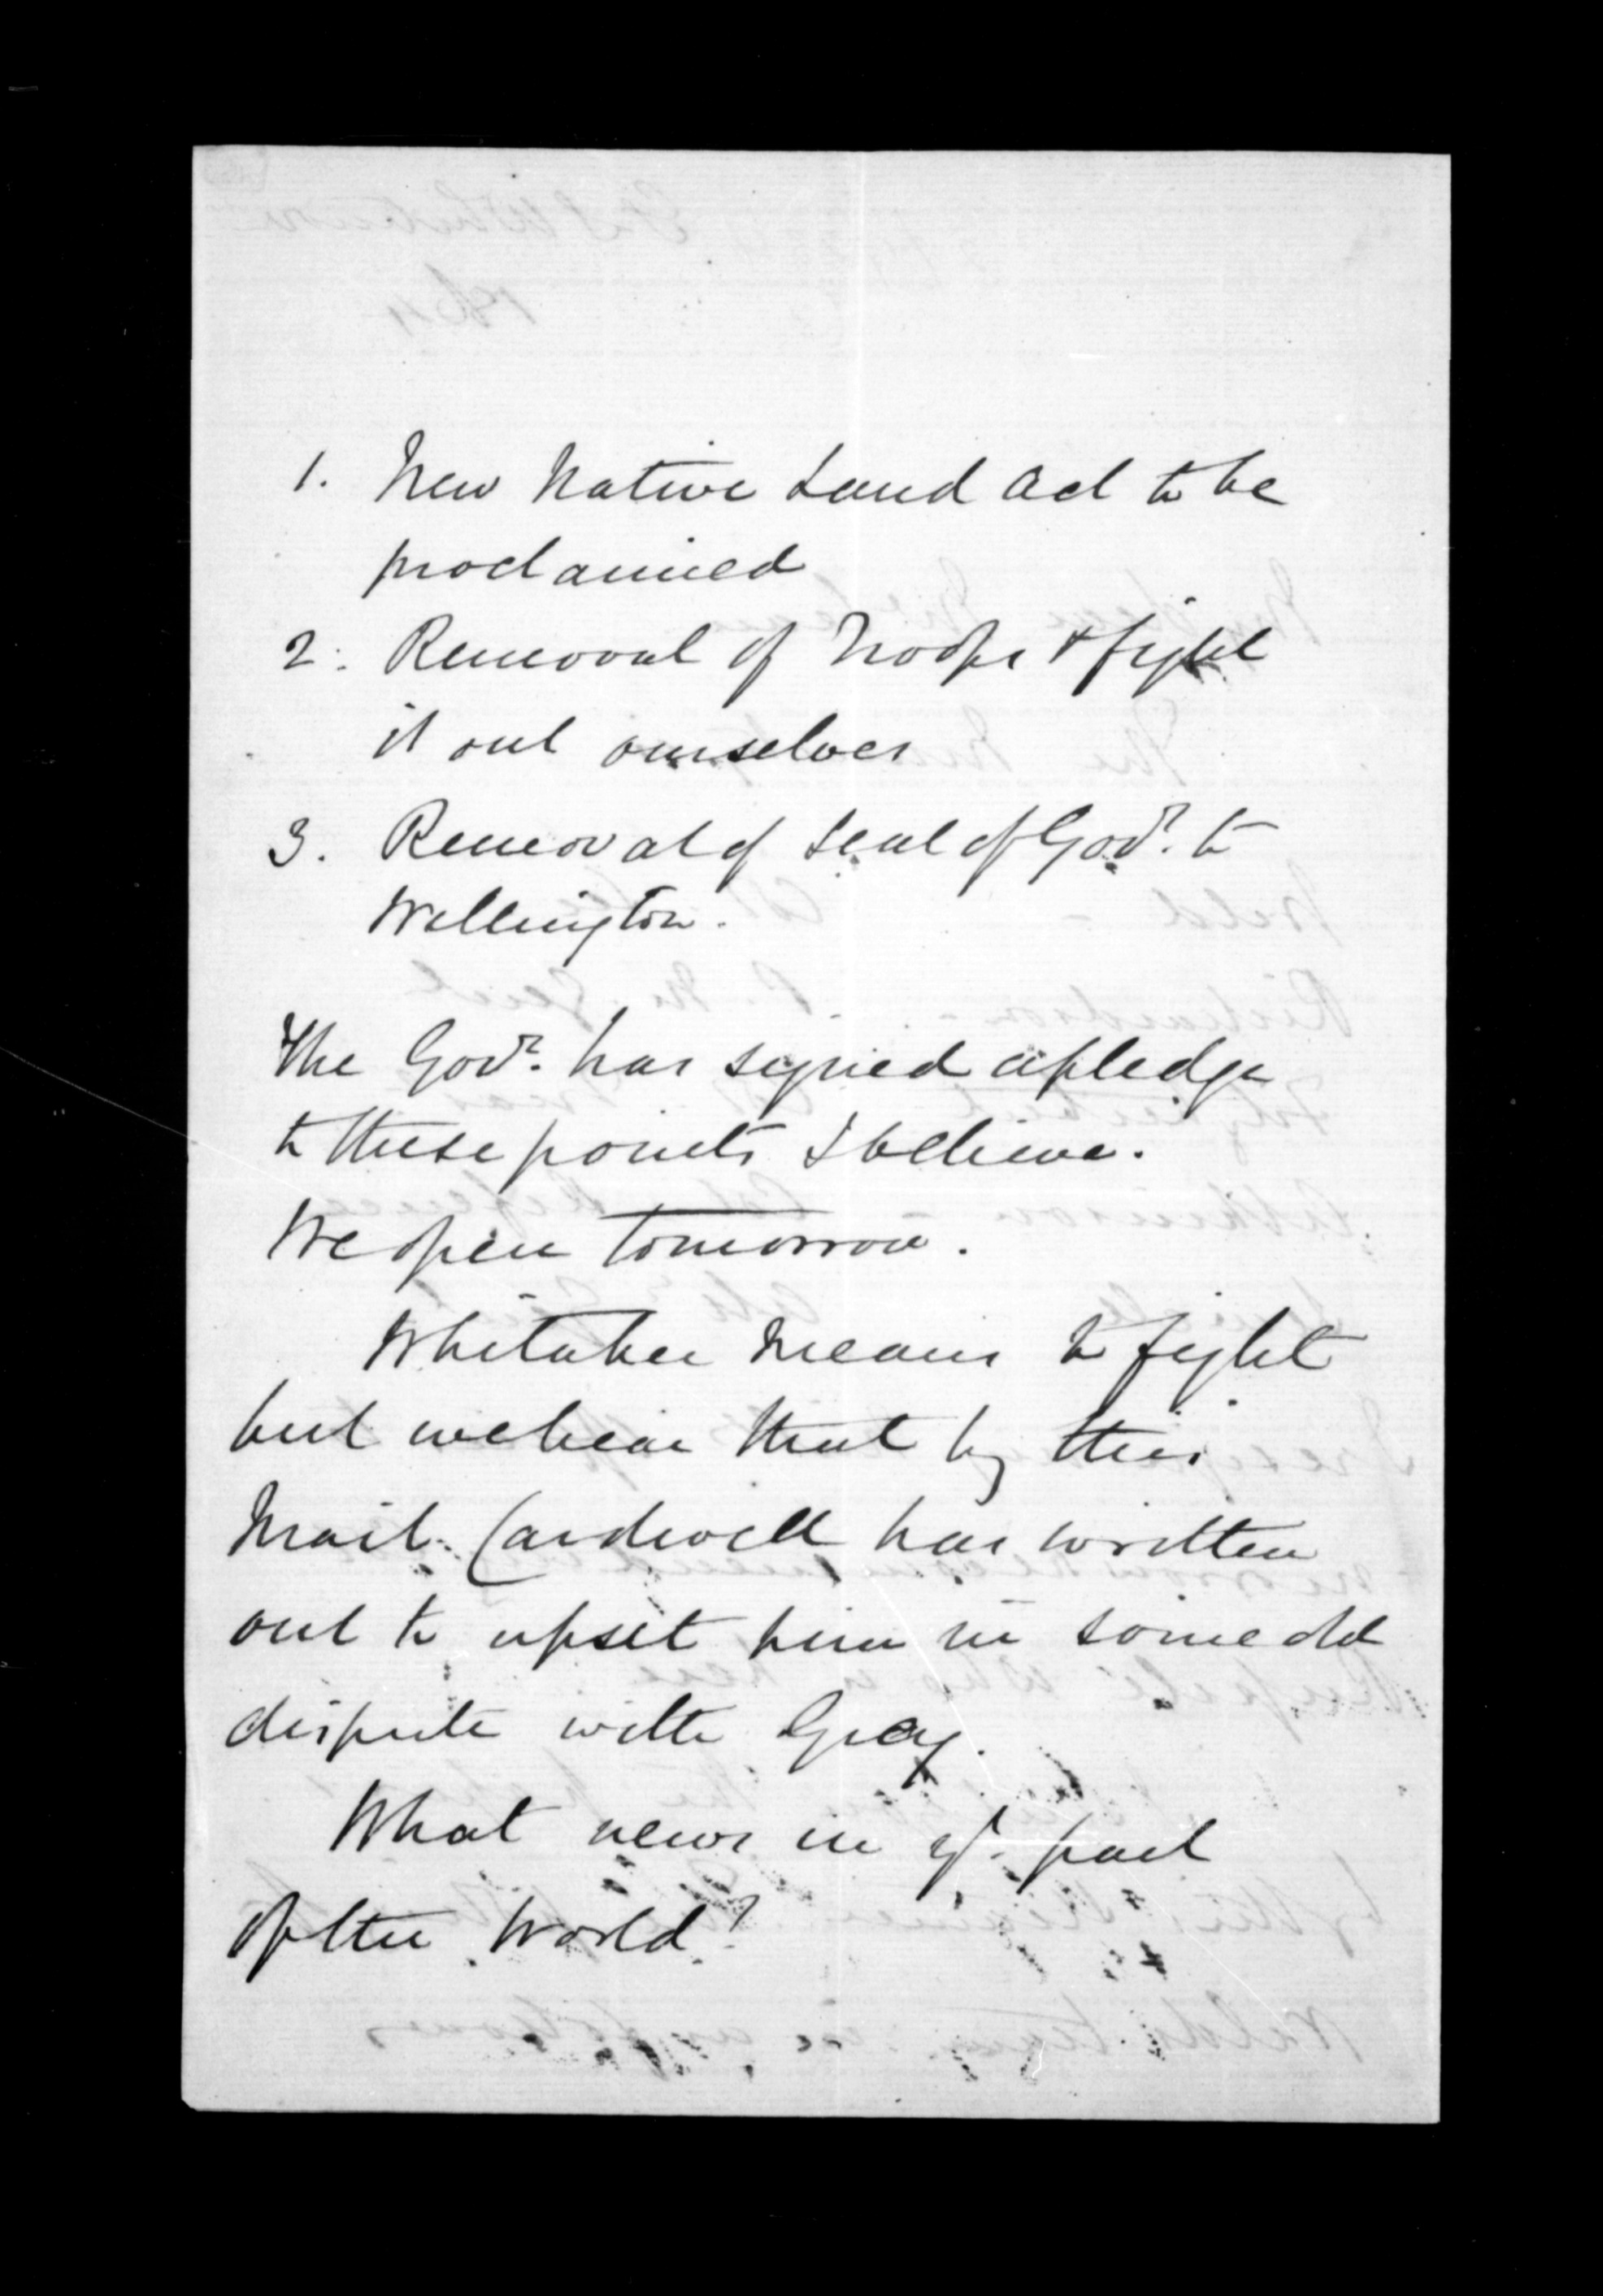 1. New Native Land Act to be
proclaimed
2. Removal of Troops & fight
it out ourselves
3. Removal of Seat of Govt. to
Wellington.
The Govr. has signed a pledge
to these points I believe.
We open tomorrow.
Whitaker means to fight
but we hear that by this
Mail. Cardwell has written
out to upset him in some old
dispute with Grey.
What news in yr. part
of the World?